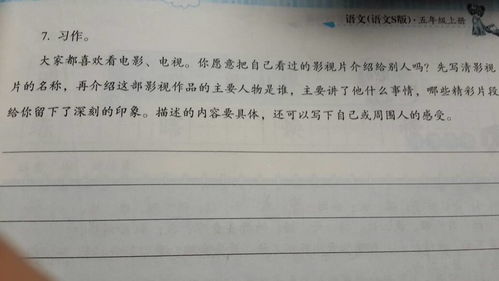 语文(语文S版)·五年级上册
7. 习作。
大家都喜欢看电影、电视。你愿意把自己看过的影视片介绍给别人吗?先写清影视
片的名称,再介绍这部影视作品的主要人物是谁,主要讲了他什么事情,哪些精彩片段
给你留下了深刻的印象。描述的内容要具体,还可以写下自己或周围人的感受。